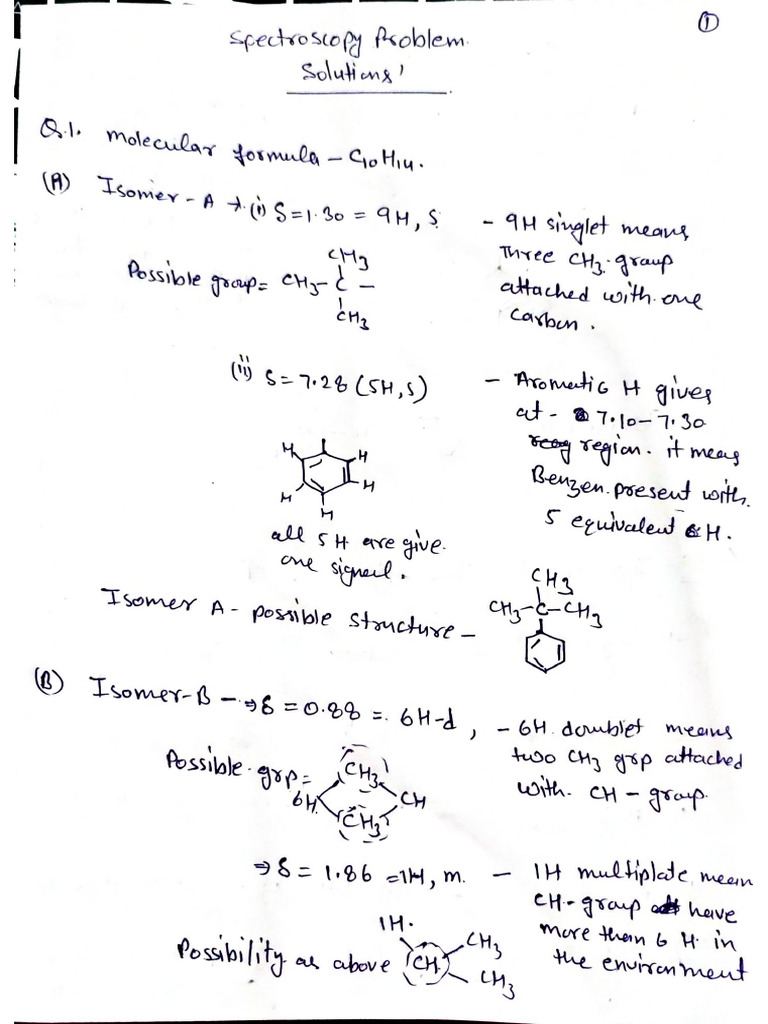 ①
Spectroscopy Problem
Solutions'
Q.1. molecular formula – C10H14.
(A) Isomer - A → (i) S=1.30 = 9H, S.
- 9H singlet means
Three CH3 group
attached with one
carbon.
CH3
Possible group = CH3 - C -
CH3
(ii) S = 7.28 (5H, S)
- Aromatic H gives
at - 7.10 – 7.30
region. it means
Benzen present with
5 equivalent H.
H H
H H
H
all 5 H are give
one signal.
Isomer A - possible structure –
CH3
CH3-C-CH3
(B) Isomer-B – ⇒ δ = 0.88 = 6H-d,
- 6H doublet means
two CH3 grp attached
with CH - group
Possible grp =
CH3
6H CH
CH3
⇒ δ = 1.86 = 1H, m.
- 1H multiplate mean
CH - group have
more than 6 H in
the environment
1H.
Possibility as above CH CH3
CH3